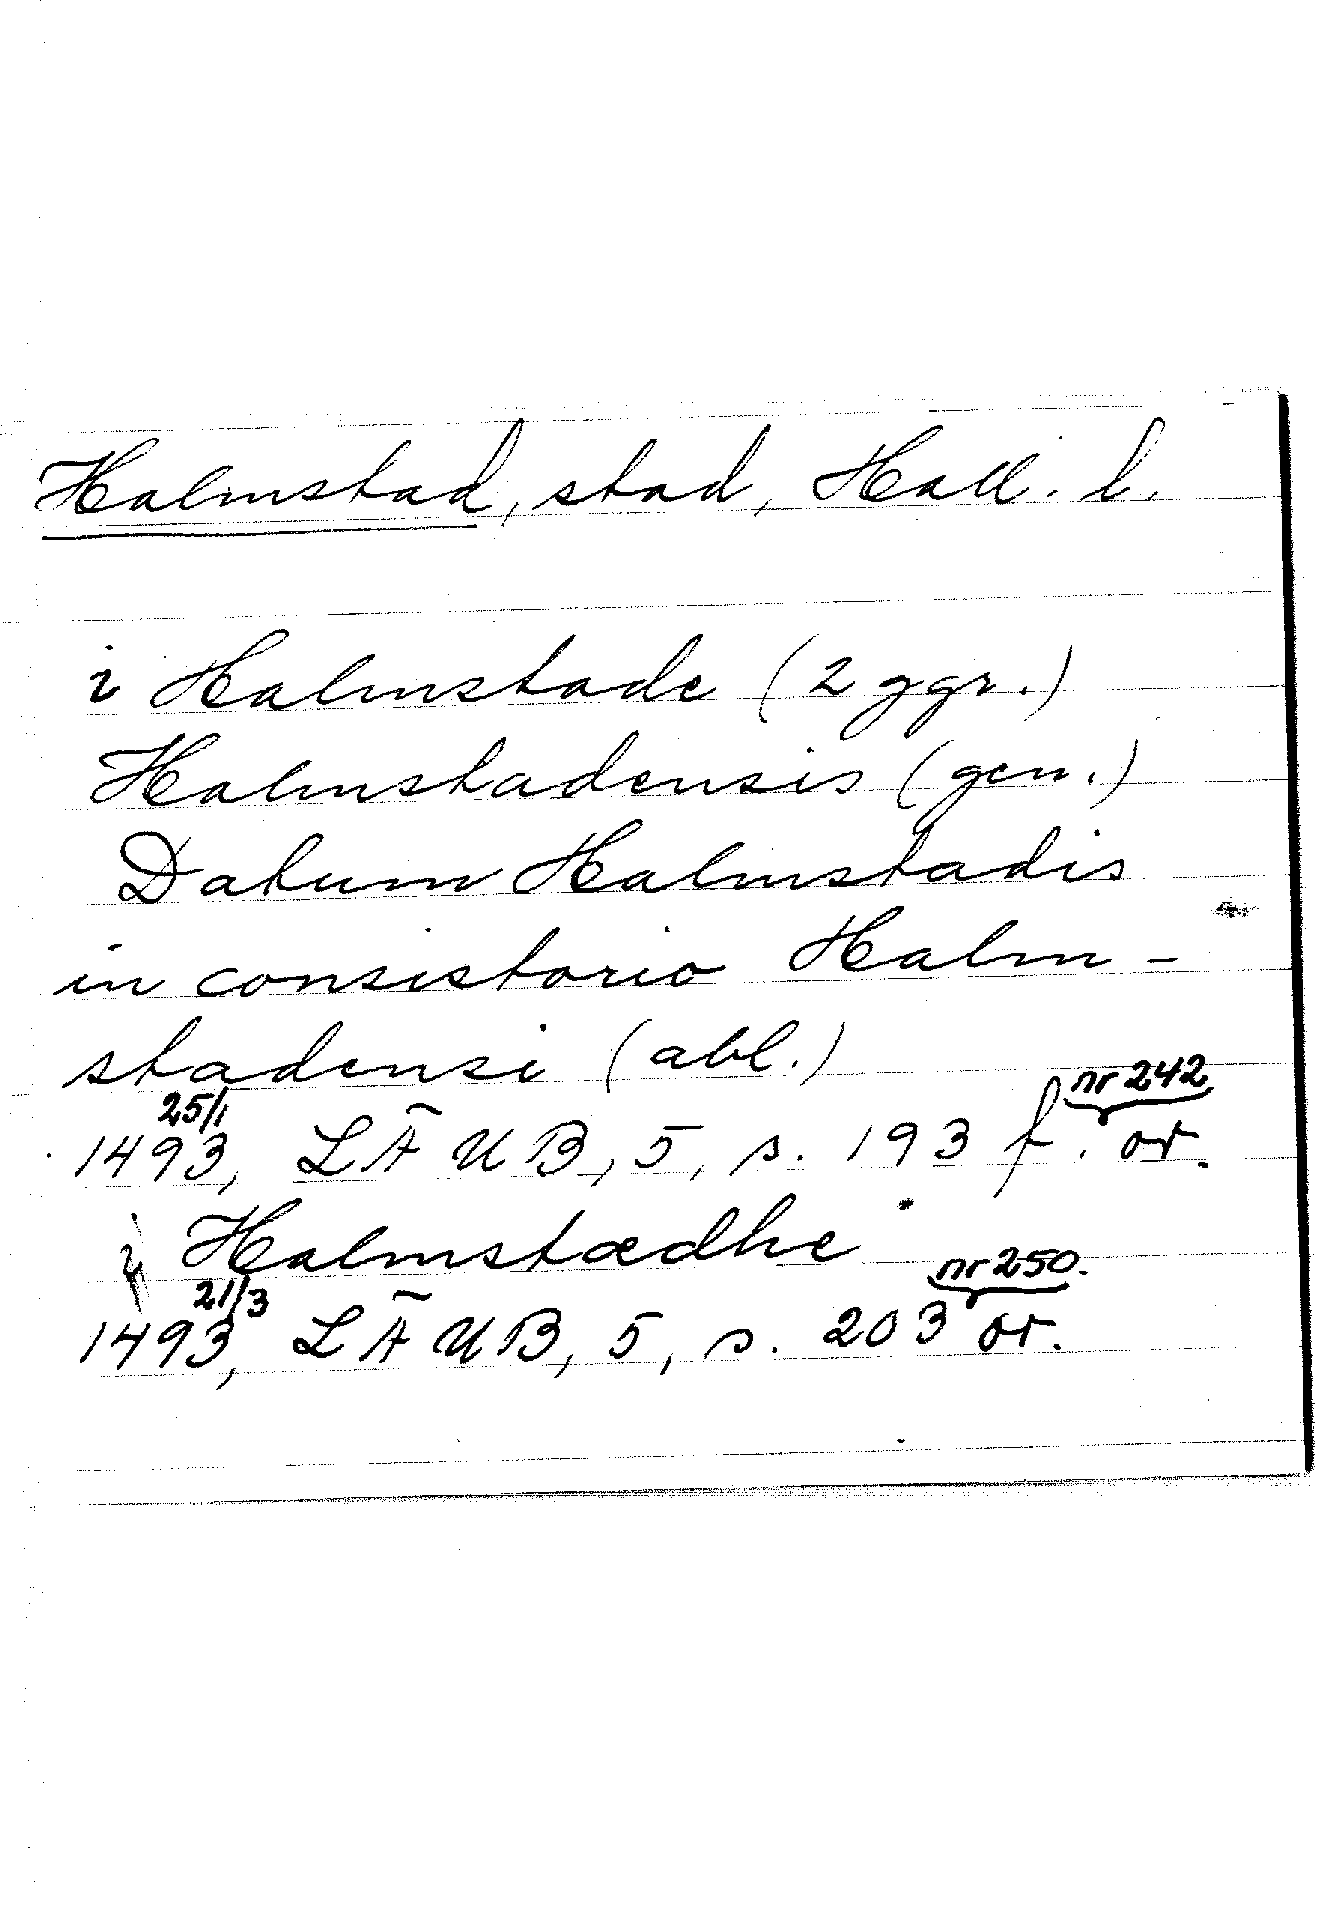 Halmstad, stad, Hall. l.
i Halmstade (2 ggr.)
Halmstadensis (gen.)
Datum Halmstadis
in consistorio Halm-
stadensi (abl.)
nr 242
25/1
1493, LÄUB, 5, s. 193 f. or.
i Halmstædhe
nr 250.
21/3
1493, LÄUB, 5, s. 203 or.